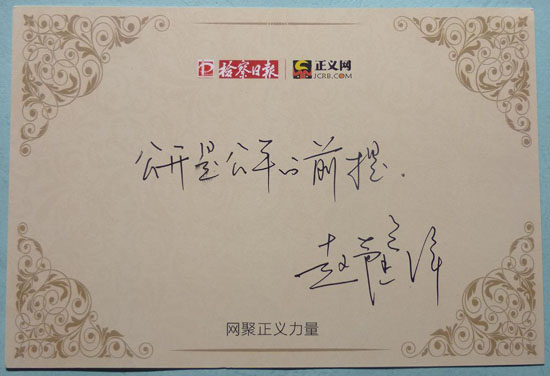 检察日报 正义网
JCRB.COM
公开是公平的前提.
网聚正义力量